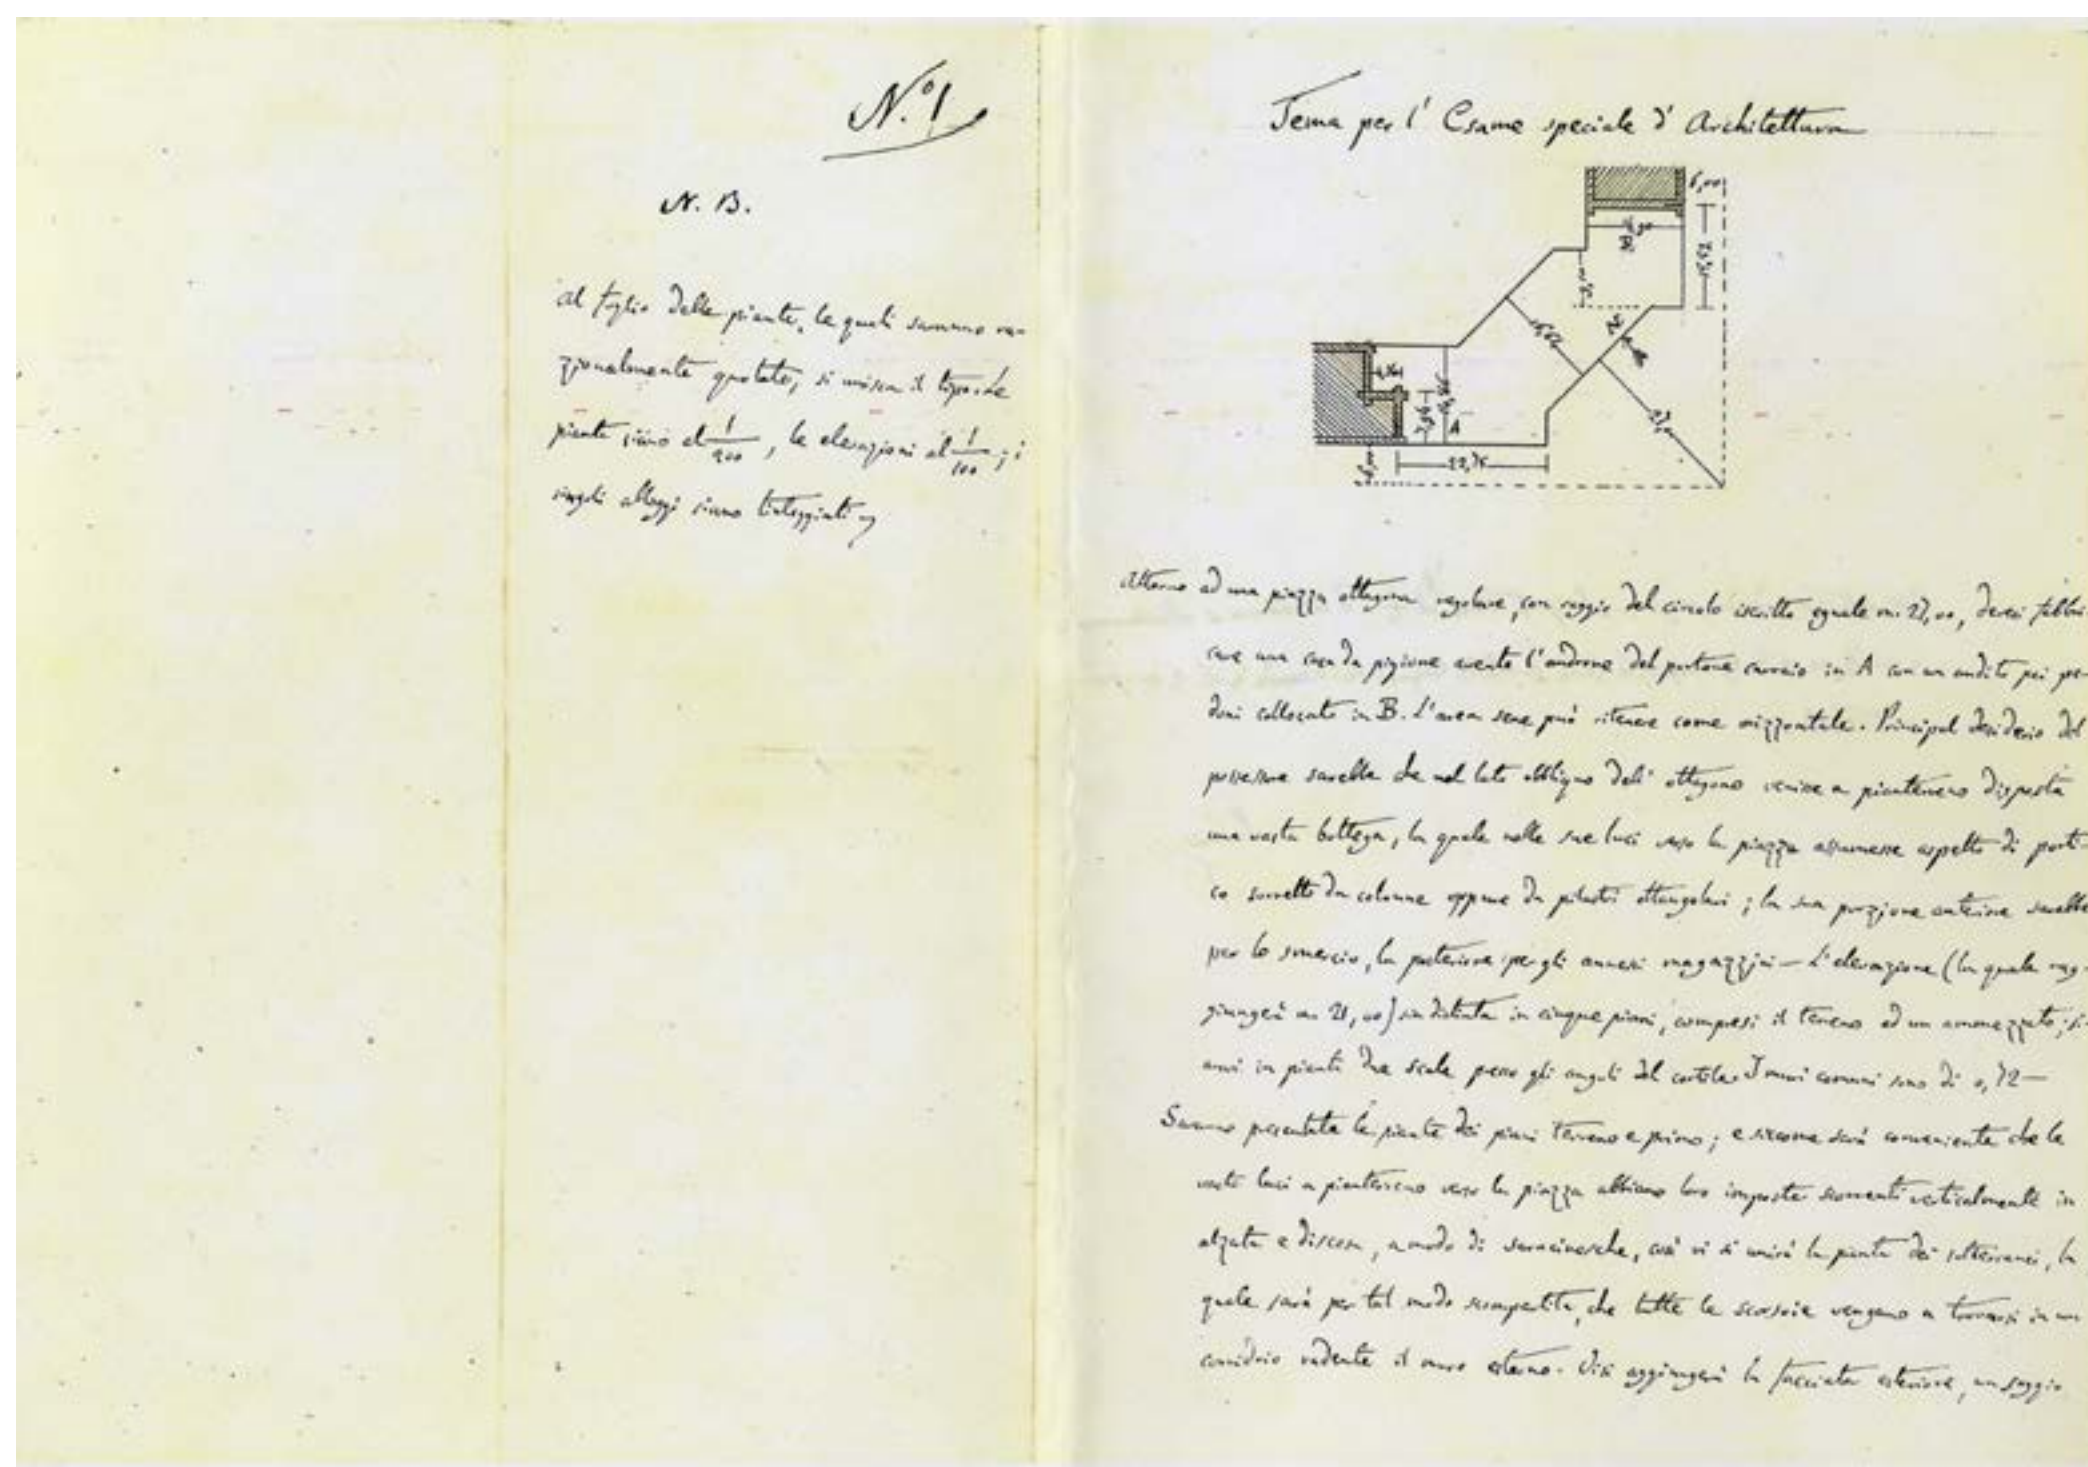 N.º 1
N. B.
Al foglio delle piante, le quali saranno ra-
zionalmente quotate, si unisca il tipo. Le
piante siano al 1/200, le elevazioni al 1/100; i
singoli alloggi siano tinteggiati
Tema per l'Esame speciale d'Architettura
6,00
B
A
22,75
Attorno ad una piazza ottagona regolare, con raggio del circolo iscritto eguale m. 27,00, devesi fabbri-
care una casa da pigione avente l'androne del portone carraio in A con un andito pei pe-
doni collocato in B. L'area sene può ritenere come orizzontale. Principal desiderio del
possessore sarebbe che nel lato obliquo dell'ottagono venisse a pianterreno disposta
una vasta bottega, la quale nelle sue luci verso la piazza assumesse aspetto di porti-
co sorretto da colonne oppure da pilastri ottangolari; la sua porzione anteriore sarebbe
per lo smercio, la posteriore per gli annessi magazzini — L'elevazione (la quale rag-
giungerà m. 21,00) sia distinta in cinque piani, compresi il terreno ed un ammezzato; si-
anvi in pianta due scale presso gli angoli del cortile. I muri comuni sono di 0,72 —
Saranno presentate le piante dei piani terreno e primo; e siccome sarà conveniente che le
vaste luci a pianterreno verso la piazza abbiano loro imposte scorrenti verticalmente in
alzata e discesa, a modo di saracinesche, così vi si unirà la pianta dei sotterranei, la
quale sarà per tal modo scompartita, che tutte le scorsoie vengano a trovarsi in un
corridoio radente il muro esterno. Visi aggiungerà la facciata esteriore, un saggio